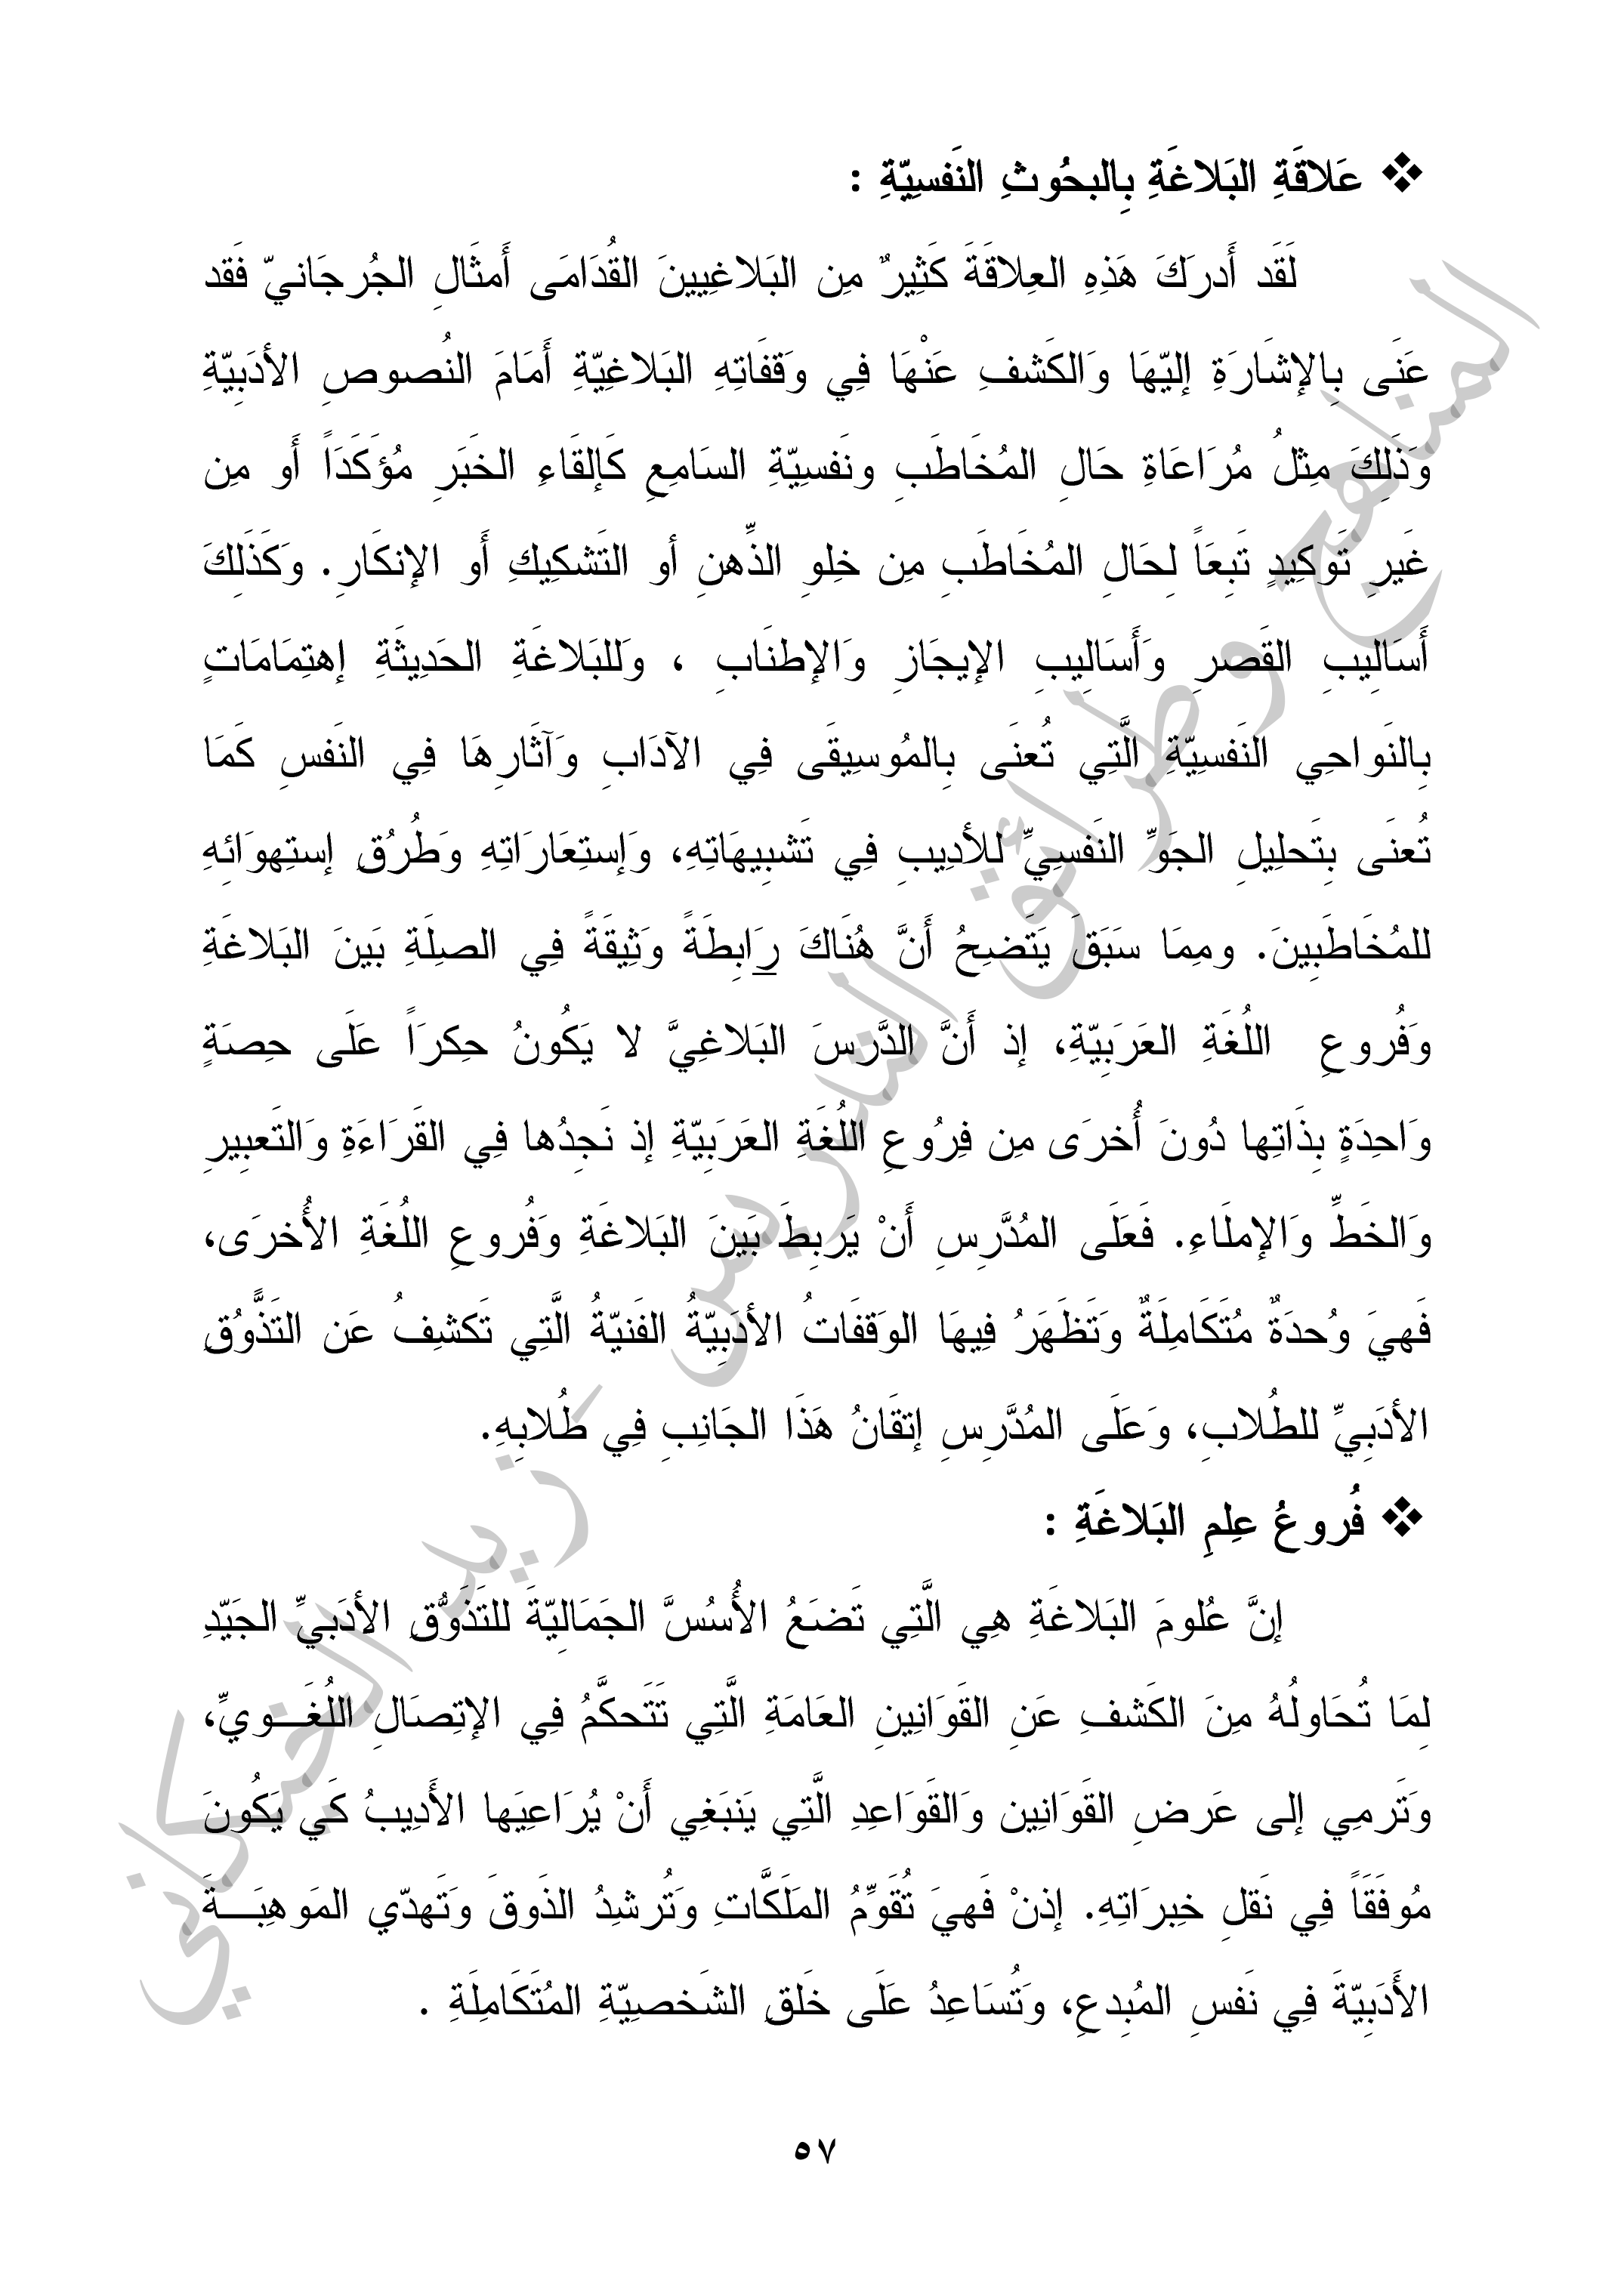 ❖ عَلاقَةِ البَلاغَةِ بِالبحُوثِ النَفسِيّةِ :
لَقَد أَدرَكَ هَذِهِ العِلاقَةَ كَثِيرٌ مِن البَلاغِيينَ القُدَامَى أَمثَالِ الجُرجَانيّ فَقد
عَنَى بِالإشَارَةِ إليّهَا وَالكَشفِ عَنْهَا فِي وَقفَاتِهِ البَلاغِيّةِ أَمَامَ النُصوصِ الأدَبِيّةِ
وَذَلِكَ مِثلُ مُرَاعَاةِ حَالِ المُخَاطَبِ ونَفسِيّةِ السَامِعِ كَإلقَاءِ الخَبَرِ مُؤَكَدَاً أَو مِن
غَيرِ تَوكِيدٍ تَبِعَاً لِحَالِ المُخَاطَبِ مِن خِلوِ الذِّهنِ أو التَشكِيكِ أَو الإنكَارِ. وَكَذَلِكَ
أَسَالِيبِ القَصرِ وَأَسَالِيبِ الإيجَازِ وَالإطنَابِ ، وَللبَلاغَةِ الحَدِيثَةِ إهتِمَامَاتٍ
بِالنَواحِي النَفسِيّةِ الَّتِي تُعنَى بِالمُوسِيقَى فِي الآدَابِ وَآثَارِهَا فِي النَفسِ كَمَا
تُعنَى بِتَحلِيلِ الجَوِّ النَفسِيِّ للأدِيبِ فِي تَشبِيهَاتِهِ، وَإستِعَارَاتِهِ وَطُرُقِ إستِهوَائِهِ
للمُخَاطَبِينَ. ومِمَا سَبَقَ يَتَضِحُ أَنَّ هُنَاكَ رَابِطَةً وَثِيقَةً فِي الصِلَةِ بَينَ البَلاغَةِ
وَفُروعِ اللُغَةِ العَرَبِيّةِ، إذ أَنَّ الدَّرسَ البَلاغِيَّ لا يَكُونُ حِكرَاً عَلَى حِصَةٍ
وَاحِدَةٍ بِذَاتِها دُونَ أُخرَى مِن فِرُوعِ اللُغَةِ العَرَبِيّةِ إذ نَجِدُها فِي القَرَاءَةِ وَالتَعبِيرِ
وَالخَطِّ وَالإملَاءِ. فَعَلَى المُدَّرِسِ أَنْ يَربِطَ بَينَ البَلاغَةِ وَفُروعِ اللُغَةِ الأُخرَى،
فَهيَ وُحدَةٌ مُتَكَامِلَةٌ وَتَظَهَرُ فِيهَا الوَقفَاتُ الأدَبِيّةُ الفَنيّةُ الَّتِي تَكشِفُ عَن التَذَّوُقِ
الأدَبِيِّ للطُلابِ، وَعَلَى المُدَّرِسِ إتقَانُ هَذَا الجَانِبِ فِي طُلابِهِ.
❖ فُروعُ عِلمِ البَلاغَةِ :
إنَّ عُلومَ البَلاغَةِ هِي الَّتِي تَضَعُ الأُسُسَّ الجَمَالِيّةَ للتَذَوُّقِ الأدَبيِّ الجَيّدِ
لِمَا تُحَاولُهُ مِنَ الكَشفِ عَنِ القَوَانِينِ العَامَةِ الَّتِي تَتَحكَّمُ فِي الإتِصَالِ اللُغَـــويِّ،
وَتَرمِي إلى عَرضِ القَوَانِين وَالقَوَاعِدِ الَّتِي يَنبَغِي أَنْ يُرَاعِيَها الأَدِيبُ كَي يَكُونَ
مُوفَقَاً فِي نَقلِ خِبرَاتِهِ. إذنْ فَهيَ تُقَوِّمُ المَلَكَّاتِ وَتُرشِدُ الذَوقَ وَتَهدّي المَوهِبَـــةَ
الأَدَبِيّةَ فِي نَفسِ المُبِدعِ، وَتُسَاعِدُ عَلَى خَلَقِ الشَخصِيّةِ المُتَكَامِلَةِ .
٥٧
المناهج وطرائق التدريس – زيد الخيكاني